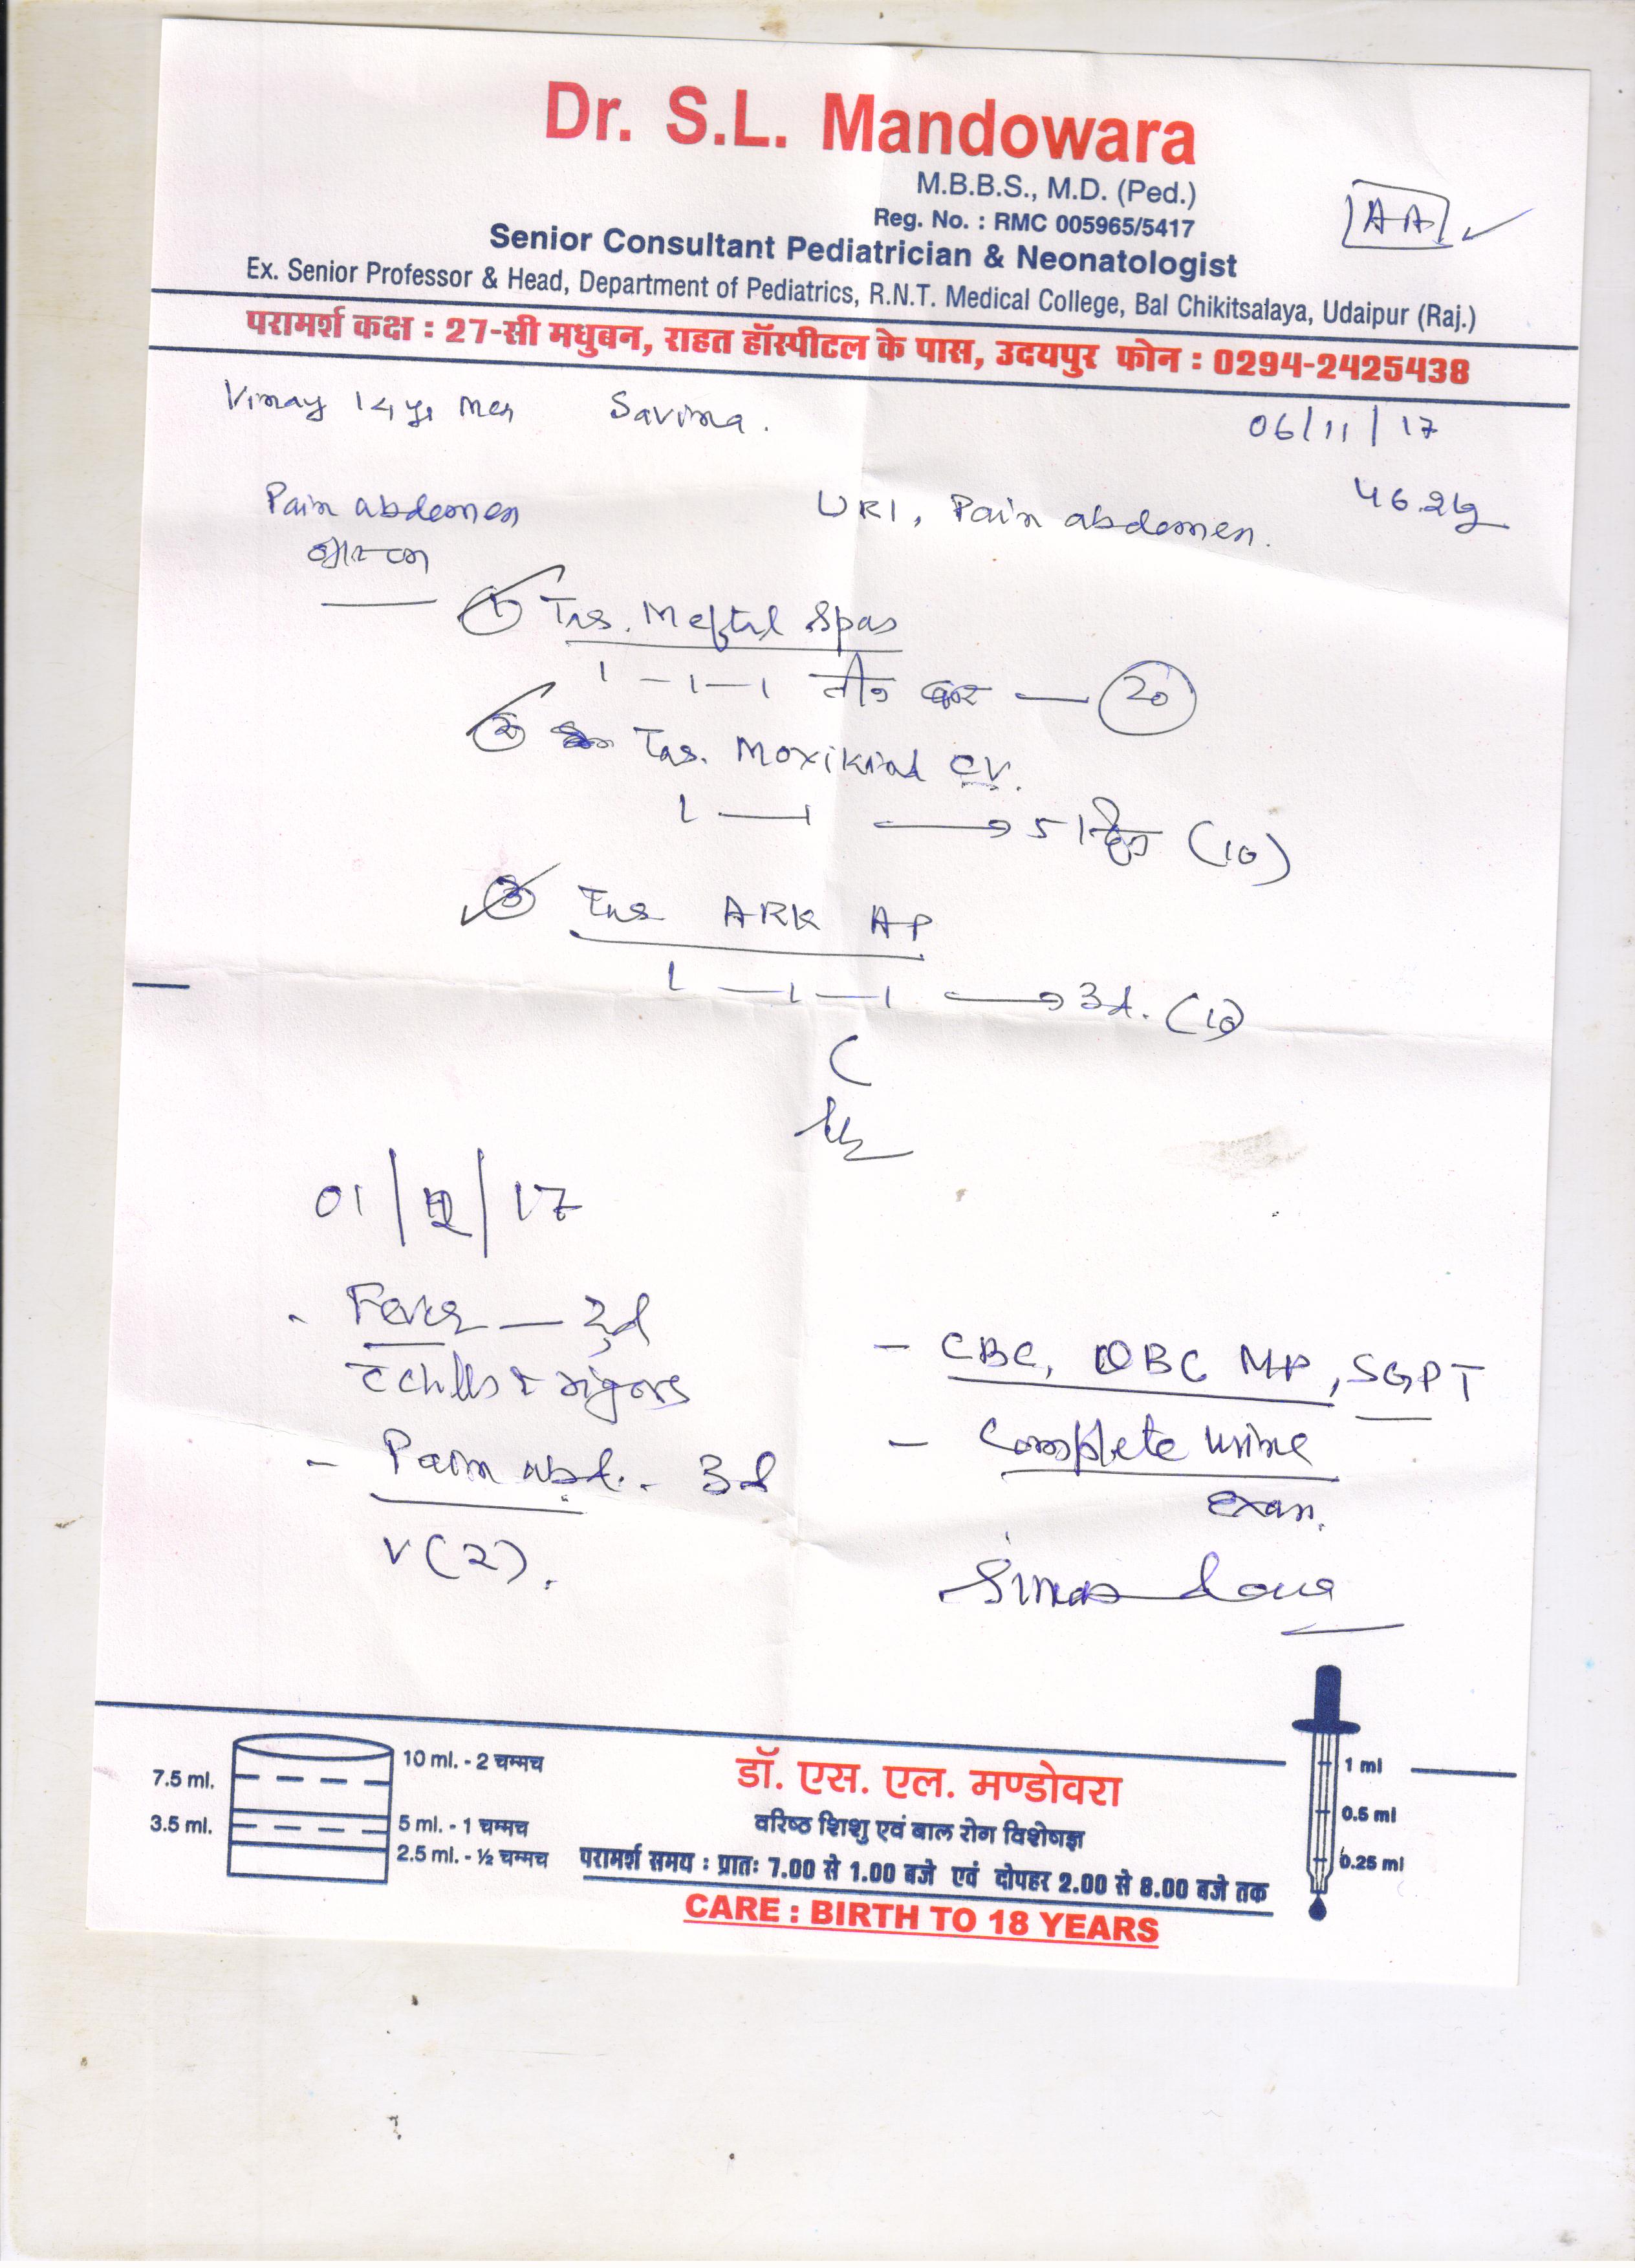 Dr. S.L. Mandowara
M.B.B.S., M.D. (Ped.)
Reg. No. : RMC 005965/5417
AA
Senior Consultant Pediatrician & Neonatologist
Ex. Senior Professor & Head, Department of Pediatrics, R.N.T. Medical College, Bal Chikitsalaya, Udaipur (Raj.)
परामर्श कक्ष : 27-सी मधुबन, राहत हॉस्पीटल के पास, उदयपुर फोन : 0294-2425438
Vinay 14 yr Savina.
06/11/17
46.2kg
Pain abdomen
URI, Pain abdomen.
1 Tab. Meftal Spas
1 — 1 — 1 तीन बार — 20
2 Tab. Moxikind CV.
1 — 1 → 5 दिन (10)
3 Tab ARK AP
1 — 1 — 1 → 3d. (10)
01/12/17
- Fever — 2d
c chills & rigors
- Pain abd. - 3d
V (2).
- CBC, QBC MP, SGPT
- Complete Urine
Exam.
7.5 ml.
3.5 ml.
10 ml. - 2 चम्मच
5 ml. - 1 चम्मच
2.5 ml. - ½ चम्मच
डॉ. एस. एल. मण्डोवरा
वरिष्ठ शिशु एवं बाल रोग विशेषज्ञ
परामर्श समय : प्रातः 7.00 से 1.00 बजे एवं दोपहर 2.00 से 8.00 बजे तक
CARE : BIRTH TO 18 YEARS
1 ml
0.5 ml
0.25 ml